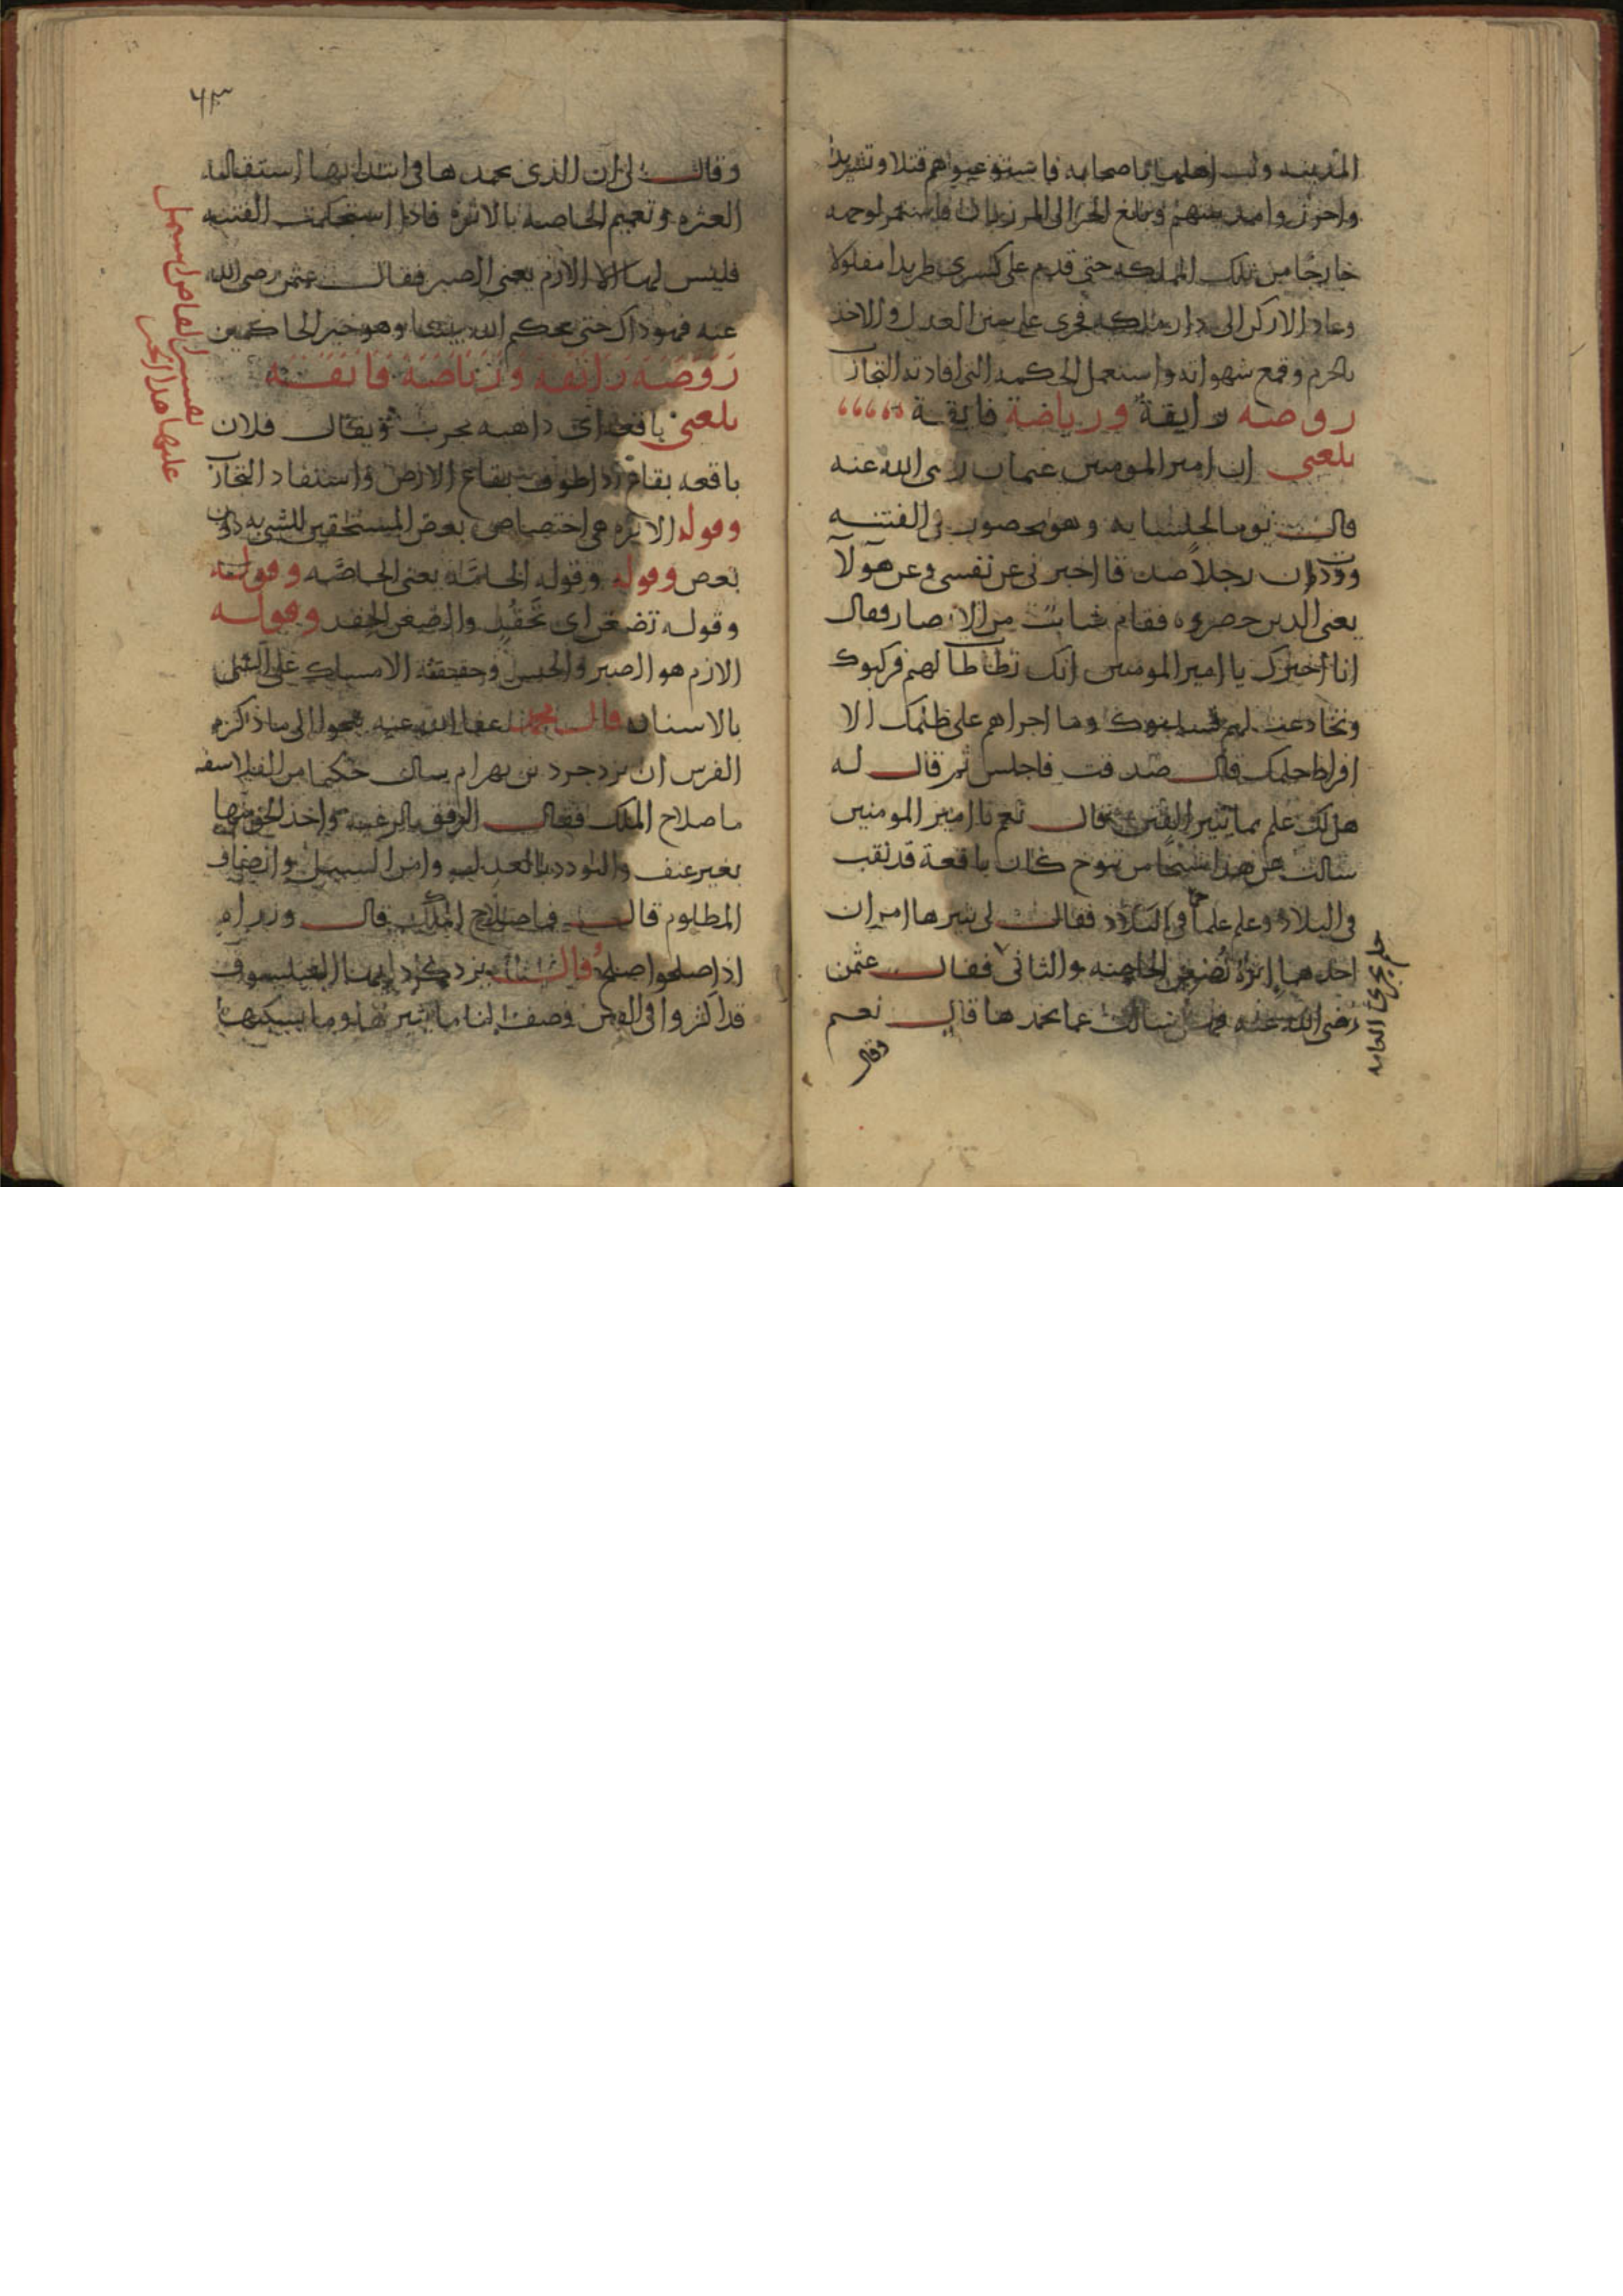 المدينه وثب اهلها باصحابه فاستوعبوهم قتلا وتشريدا
واحرز وامدينتهم وبلغ الخبر الى المرزبان فاستمر لوجهه
خارجا من تلك المملكه حتى قدم على كسرى طريدا مفلولا
وعاد الاركن الى دار ملكه فجرى على سنن العدل والاخذ
بالحزم وقمع شهواته واستعمل الحكمه التى افادته التجارب
روضه رايقة ورياضة فايقة
بلغنى ان امير المومنين عثمان رضى الله عنه
قال يوما لجلسايه وهو محصور فى الفتنه
وددت ان رجلا صدوقا اخبرنى عن نفسى وعن هولآ
يعنى الدين حصروه فقام شاب من الانصار فقال
انا اخبرك يا امير المومنين انك تطاطات لهم فركبوك
وتخادعت لهم وما اجراهم على ظلمك الا
افراط حلمك قال صدقت فاجلس ثم قال له
هل لك علم بما يثير الفتن فقال نعم يا امير المومنين
سالت عن هذا شيخا من تنوخ كان باقعة قد نقب
فى البلاد وعلم علما فقال لى يثيرها امران
احدهما اثرة تضغن الخاصه والثانى فقال عثمن
حلم يجرى العامه
رضى الله عنه فهل سالته عما يخمدها قال نعم
وقال
٦٣
وقال لى ان الذى يخمدها فى ابتدايها استقاله
العثره وتعميم الخاصه بالاثره فاذا استحكمت الفتنه
فليس لها الا الازم يعنى الصبر فقال عثمن رضى الله
عنه فهو ذاك حتى يحكم الله بيننا وهو خير الحاكمين
روضه رائقه ورياضه فائقه
بلغنى باقعه اى داهيه مجرب ويقال فلان
باقعه بقاع اذا طوف بقاع الارض واستفاد التجارب
وقوله الاثره هى اختصاص بعض المستحقين للشى به دون
بعض وقوله وقوله الحامة يعنى الخاصه وقوله
وقوله تضغن اى تحقد والضغن الحقد وقوله
الازم هو الصبر والحبس وحقيقته الامساك على الشى
بالاسنان قال محمد عفا الله عنه نحوا الى ما ذكره
الفرس ان يزدجرد بن بهرام سال حكيما من الفلاسفه
ما صلاح الملك فقال الرفق بالرعيه واخذ الحق منها
بغير عنف والتودد بالعدل وامن السبيل وانصاف
المظلوم قال فما صلاح الملك قال وزراه
اذا صلحوا صلح قال يزدجرد ايها الفيلسوف
قد اكثروا فى الفتن وصف لنا ما يثيرها وما يسكنها
تفسير الفاظ اشتمل
عليها هذا الخبر